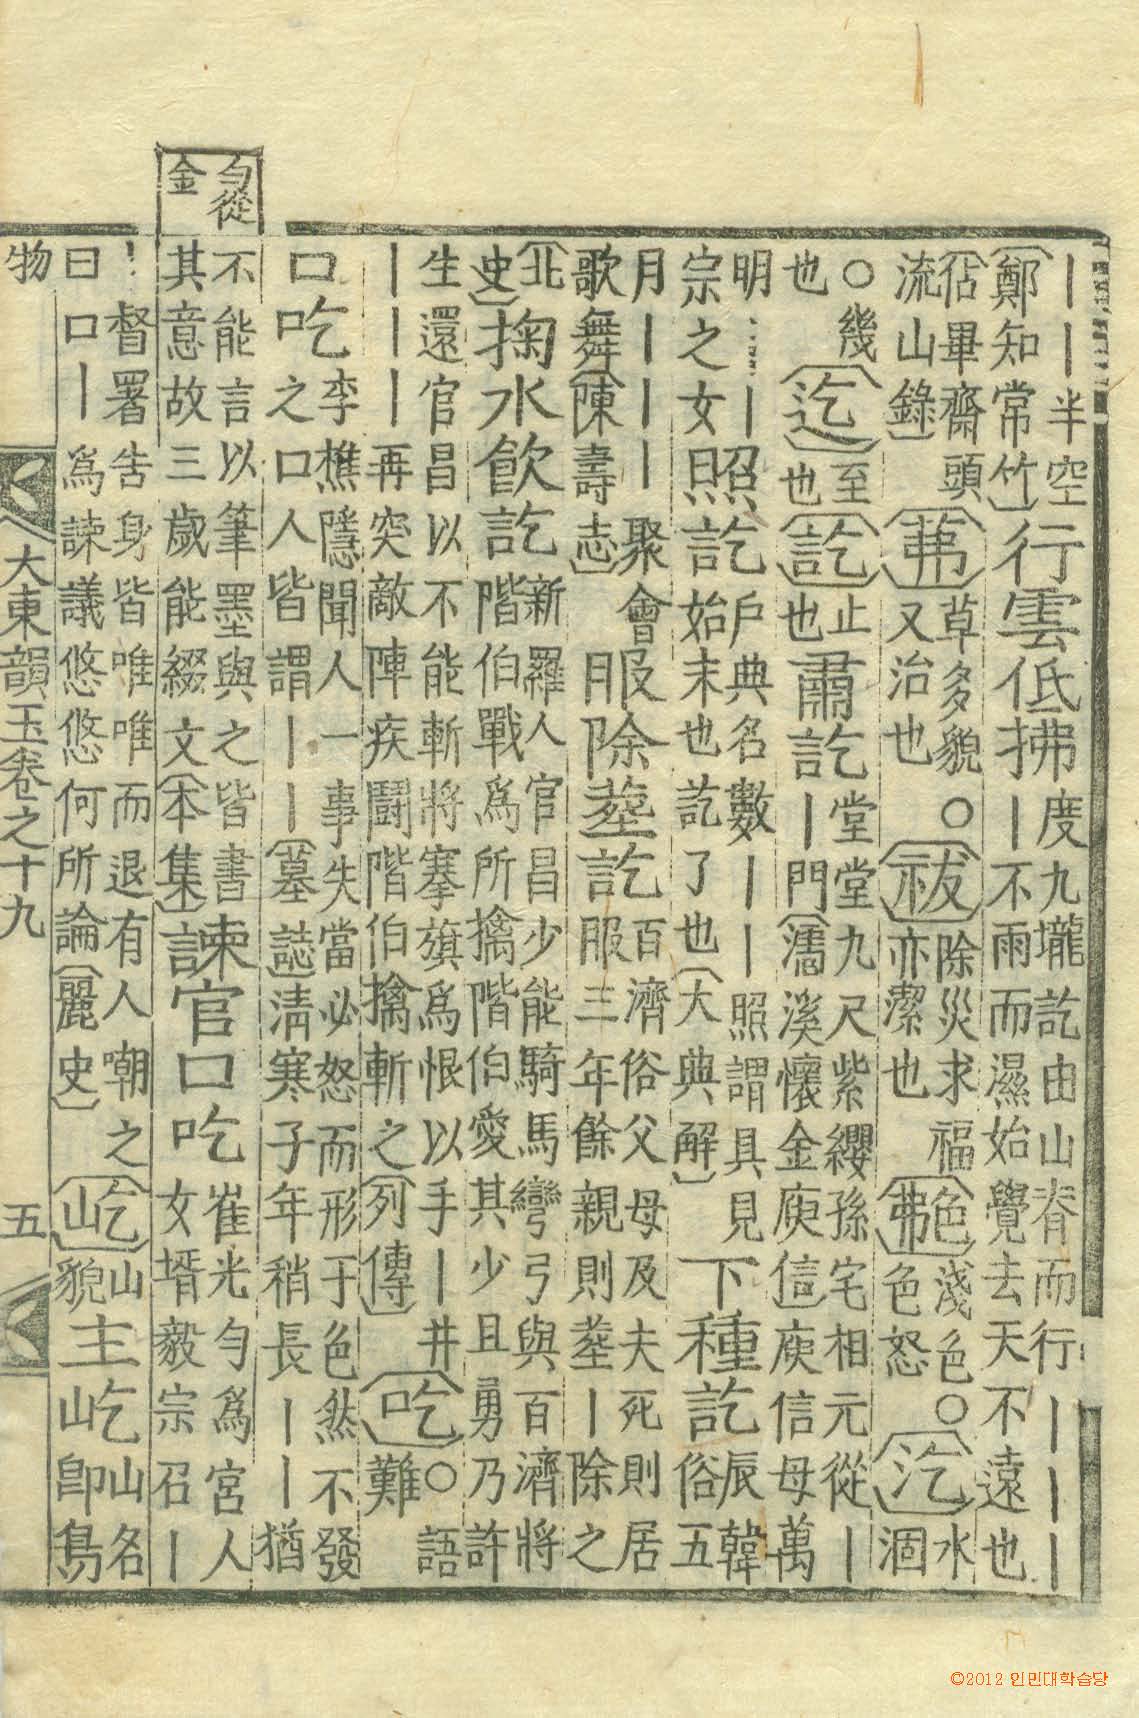 匀從金
丨丨半空(鄭知常竹)行雲低拂度九壠訖由山脊而行丨丨丨丨不雨而濕始覺去天不遠也
(佔畢齋頭流山錄)(茀)草多貌○又治也(祓)除災求福亦潔也(艴)色淺色○色怒(汔)水涸
○幾也(迄)至也(訖)止也肅訖堂堂九尺紫纓孫宅相元從丨丨門(濡溪懷金庾信)庾信母萬
明丨宗之女照訖戶典名數丨丨照謂具見始末也訖了也(大典解)下種訖辰韓俗五
月丨丨丨聚會歌舞(陳壽志)服除葬訖百濟俗父母及夫死則居服三年餘親則葬丨除之
(北史)掬水飮訖新羅人官昌少能騎馬彎弓與百濟將階伯戰爲所擒階伯愛其少且勇乃許
生還官昌以不能斬將搴旗爲恨以手丨井丨丨丨再突敵陣疾鬪階伯擒斬之(列傳)(吃)○語難
口吃李樵隱聞人一事失當必怒而形于色然不發之口人皆謂丨丨(墓誌)淸寒子年稍長丨丨猶
不能言以筆墨與之皆書其意故三歲能綴文(本集)諫官口吃崔光匀爲宮人女壻毅宗召丨
督署告身皆唯唯而退有人嘲之曰口丨爲諫議悠悠何所論(麗史)(屹)山貌主屹山名卽鳥
物 大東韻玉卷之十九 五
©2012 인민대학습당